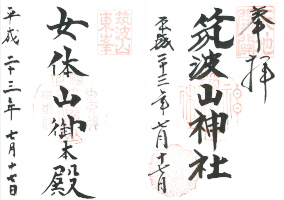 奉拝
筑波山神社
平成二十三年七月十七日
筑波山
東峯
女体山御本殿
平成二十三年七月十七日